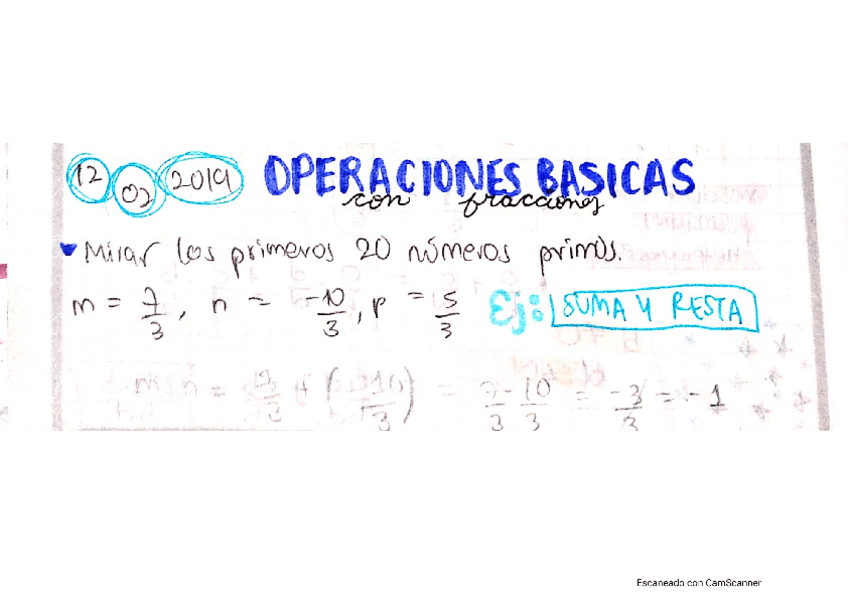 12 02 2019 OPERACIONES BASICAS
con fracciones
Mirar los primeros 20 números primos.
m = 7/3, n = -10/3, p = 5/3 Ej: SUMA Y RESTA
m + n = 7/3 + (-10/3) = 7/3 - 10/3 = -3/3 = -1
Escaneado con CamScanner